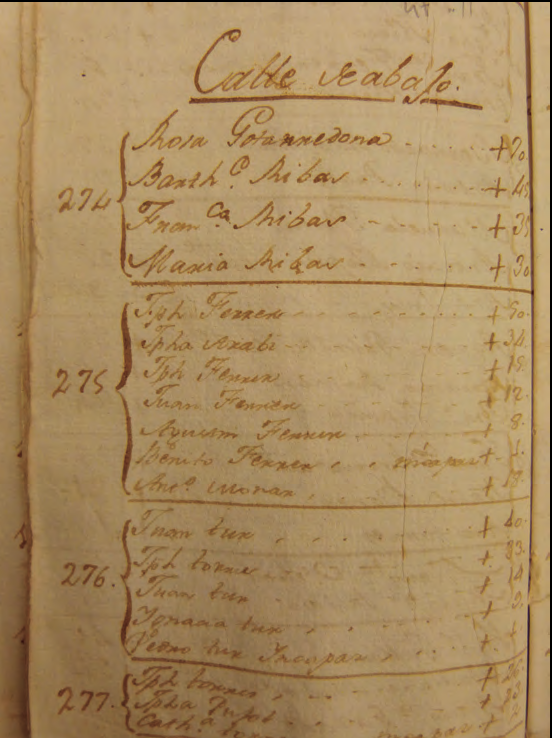 Calle de abajo.
274
Rosa Gorannedona + 70
Barth.o Ribas + 45
Fran.ca Ribas + 35
Maria Ribas + 30
275
Jph Ferrer + 50.
Jpha Arabi + 34.
Jph Ferrer + 15
Juan Ferrer + 12.
Ferrer + 8.
Benito Ferrer incapas + 1.
Ant.o + 18.
276.
Juan tur + 40.
Jph torres + 33.
Juan tur + 14
Ignacia tur +
Pedro tur Incapas +
277.
Jph torres +
Jpha Pujol +
Cath.a +